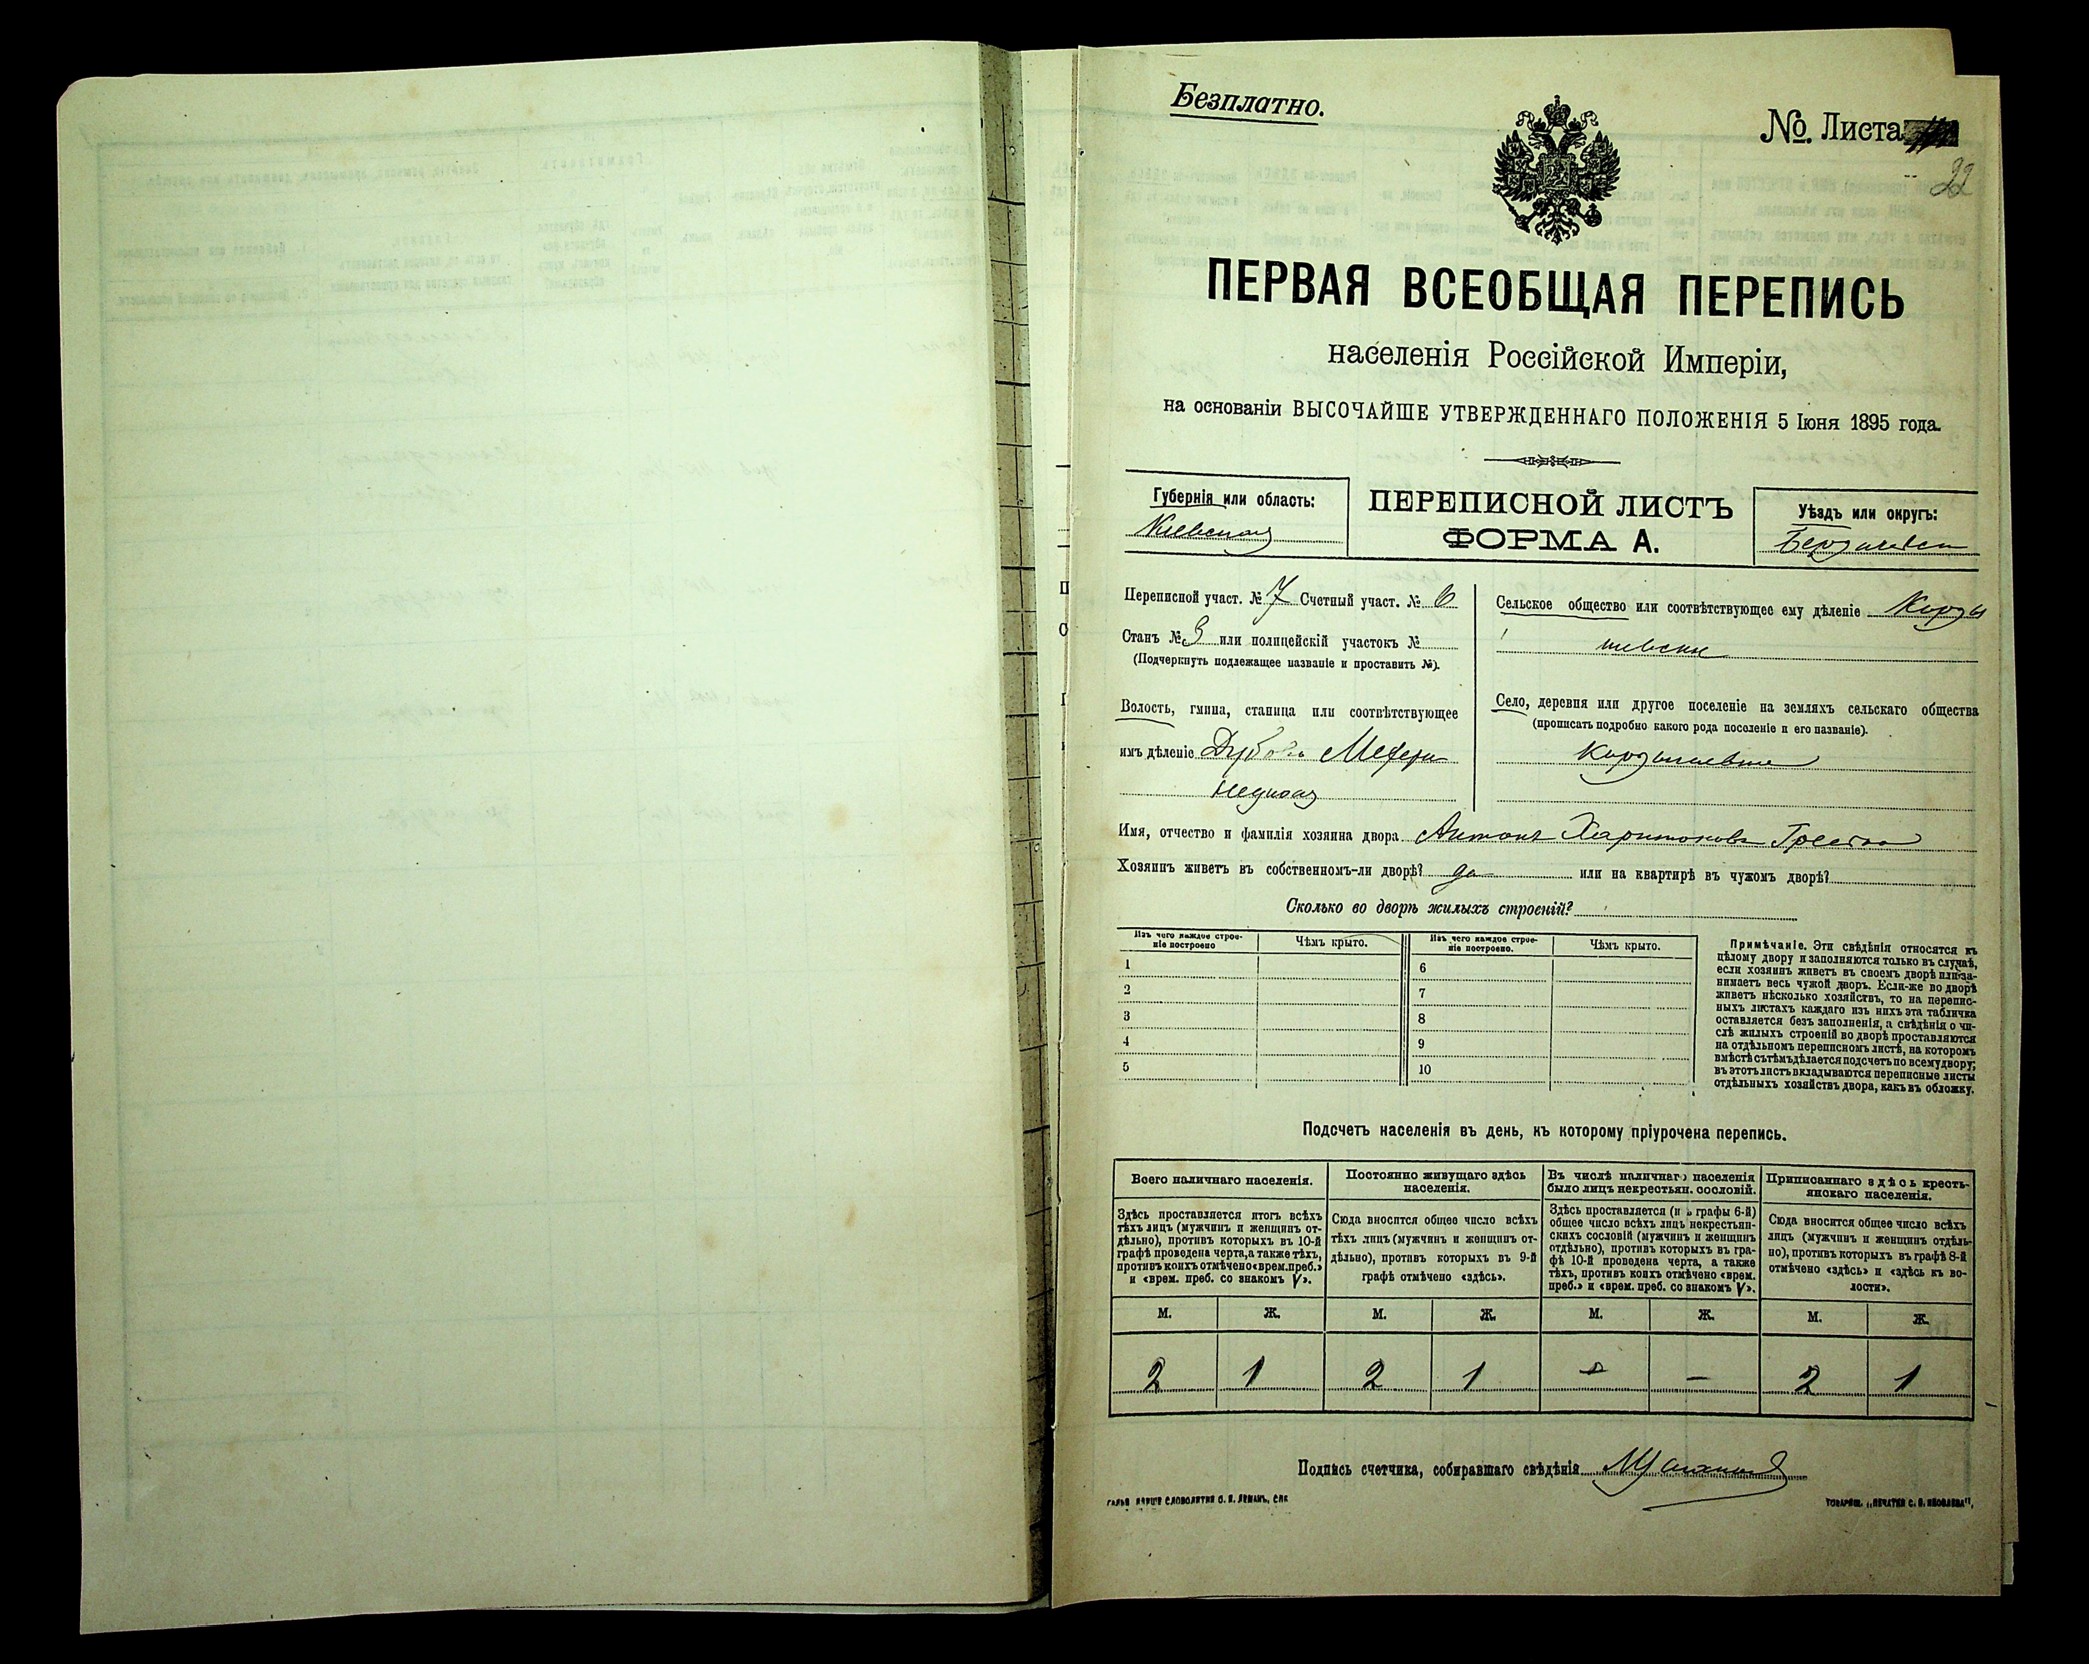 Безплатно.
№ Листа
22
ПЕРВАЯ ВСЕОБЩАЯ ПЕРЕПИСЬ
населенія Россійской Имперіи,
на основаніи ВЫСОЧАЙШЕ УТВЕРЖДЕННАГО ПОЛОЖЕНІЯ 5 Іюня 1895 года.
Губернія или область:
Кіевская
ПЕРЕПИСНОЙ ЛИСТЪ
ФОРМА А.
Уѣздъ или округъ:
Бердичевск
Переписной участ. № 7 Счетный участ. № 6
Станъ № 3 или полицейскій участокъ №
(Подчеркнуть подлежащее названіе и проставить №).
Волость, гмина, станица или соотвѣтствующее
имъ дѣленіе
Сельское общество или соотвѣтствующее ему дѣленіе Корды
шевское
Село, деревня или другое поселеніе на земляхъ сельскаго общества
(прописать подробно какого рода поселеніе и его названіе).
Кордышевка
Имя, отчество и фамилія хозяина двора Антонъ Харитоновъ
Хозяинъ живетъ въ собственномъ-ли дворѣ? да или на квартирѣ въ чужомъ дворѣ?
Сколько во дворѣ жилыхъ строеній?
Изъ чего каждое строе-
ніе построено
Чѣмъ крыто.
Изъ чего каждое строе-
ніе построено.
Чѣмъ крыто.
1
2
3
4
5
6
7
8
9
10
Примѣчаніе. Эти свѣдѣнія относятся къ
цѣлому двору и заполняются только въ случаѣ,
если хозяинъ живетъ въ своемъ дворѣ или за-
нимаетъ весь чужой дворъ. Если-же во дворѣ
живетъ нѣсколько хозяйствъ, то на перепис-
ныхъ листахъ каждаго изъ нихъ эта табличка
оставляется безъ заполненія, а свѣдѣнія о чи-
слѣ жилыхъ строеній во дворѣ проставляются
на отдѣльномъ переписномъ листѣ, на которомъ
вмѣстѣ съ тѣмъ дѣлается подсчетъ по всему двору;
въ этотъ листъ вкладываются переписные листы
отдѣльныхъ хозяйствъ двора, какъ въ обложку.
Подсчетъ населенія въ день, къ которому пріурочена перепись.
Всего наличнаго населенія.
Здѣсь проставляется итогъ всѣхъ
тѣхъ лицъ (мужчинъ и женщинъ от-
дѣльно), противъ которыхъ въ 10-й
графѣ проведена черта, а также тѣхъ,
противъ коихъ отмѣчено «врем. преб.»
и «врем. преб. со знакомъ V».
Постоянно живущаго здѣсь
населенія.
Сюда вносится общее число всѣхъ
тѣхъ лицъ (мужчинъ и женщинъ от-
дѣльно), противъ которыхъ въ 9-й
графѣ отмѣчено «здѣсь».
Въ числѣ наличнаго населенія
было лицъ некрестьян. сословій.
Здѣсь проставляется (изъ графы 6-й)
общее число всѣхъ лицъ некрестьян-
скихъ сословій (мужчинъ и женщинъ
отдѣльно), противъ которыхъ въ гра-
фѣ 10-й проведена черта, а также
тѣхъ, противъ коихъ отмѣчено «врем.
преб.» и «врем. преб. со знакомъ V».
Приписаннаго здѣсь кресть-
янскаго населенія.
Сюда вносится общее число всѣхъ
лицъ (мужчинъ и женщинъ отдѣль-
но), противъ которыхъ въ графѣ 8-й
отмѣчено «здѣсь» и «здѣсь къ во-
лости».
М. Ж. М. Ж. М. Ж. М. Ж.
2 1 2 1 – – 2 1
Подпись счетчика, собиравшаго свѣдѣнія
СЛОВОЛИТНЯ О. И. ЛЕМАНЪ, СПБ
ТОВАРИЩ. „ПЕЧАТНЯ С. П. ЯКОВЛЕВА“,